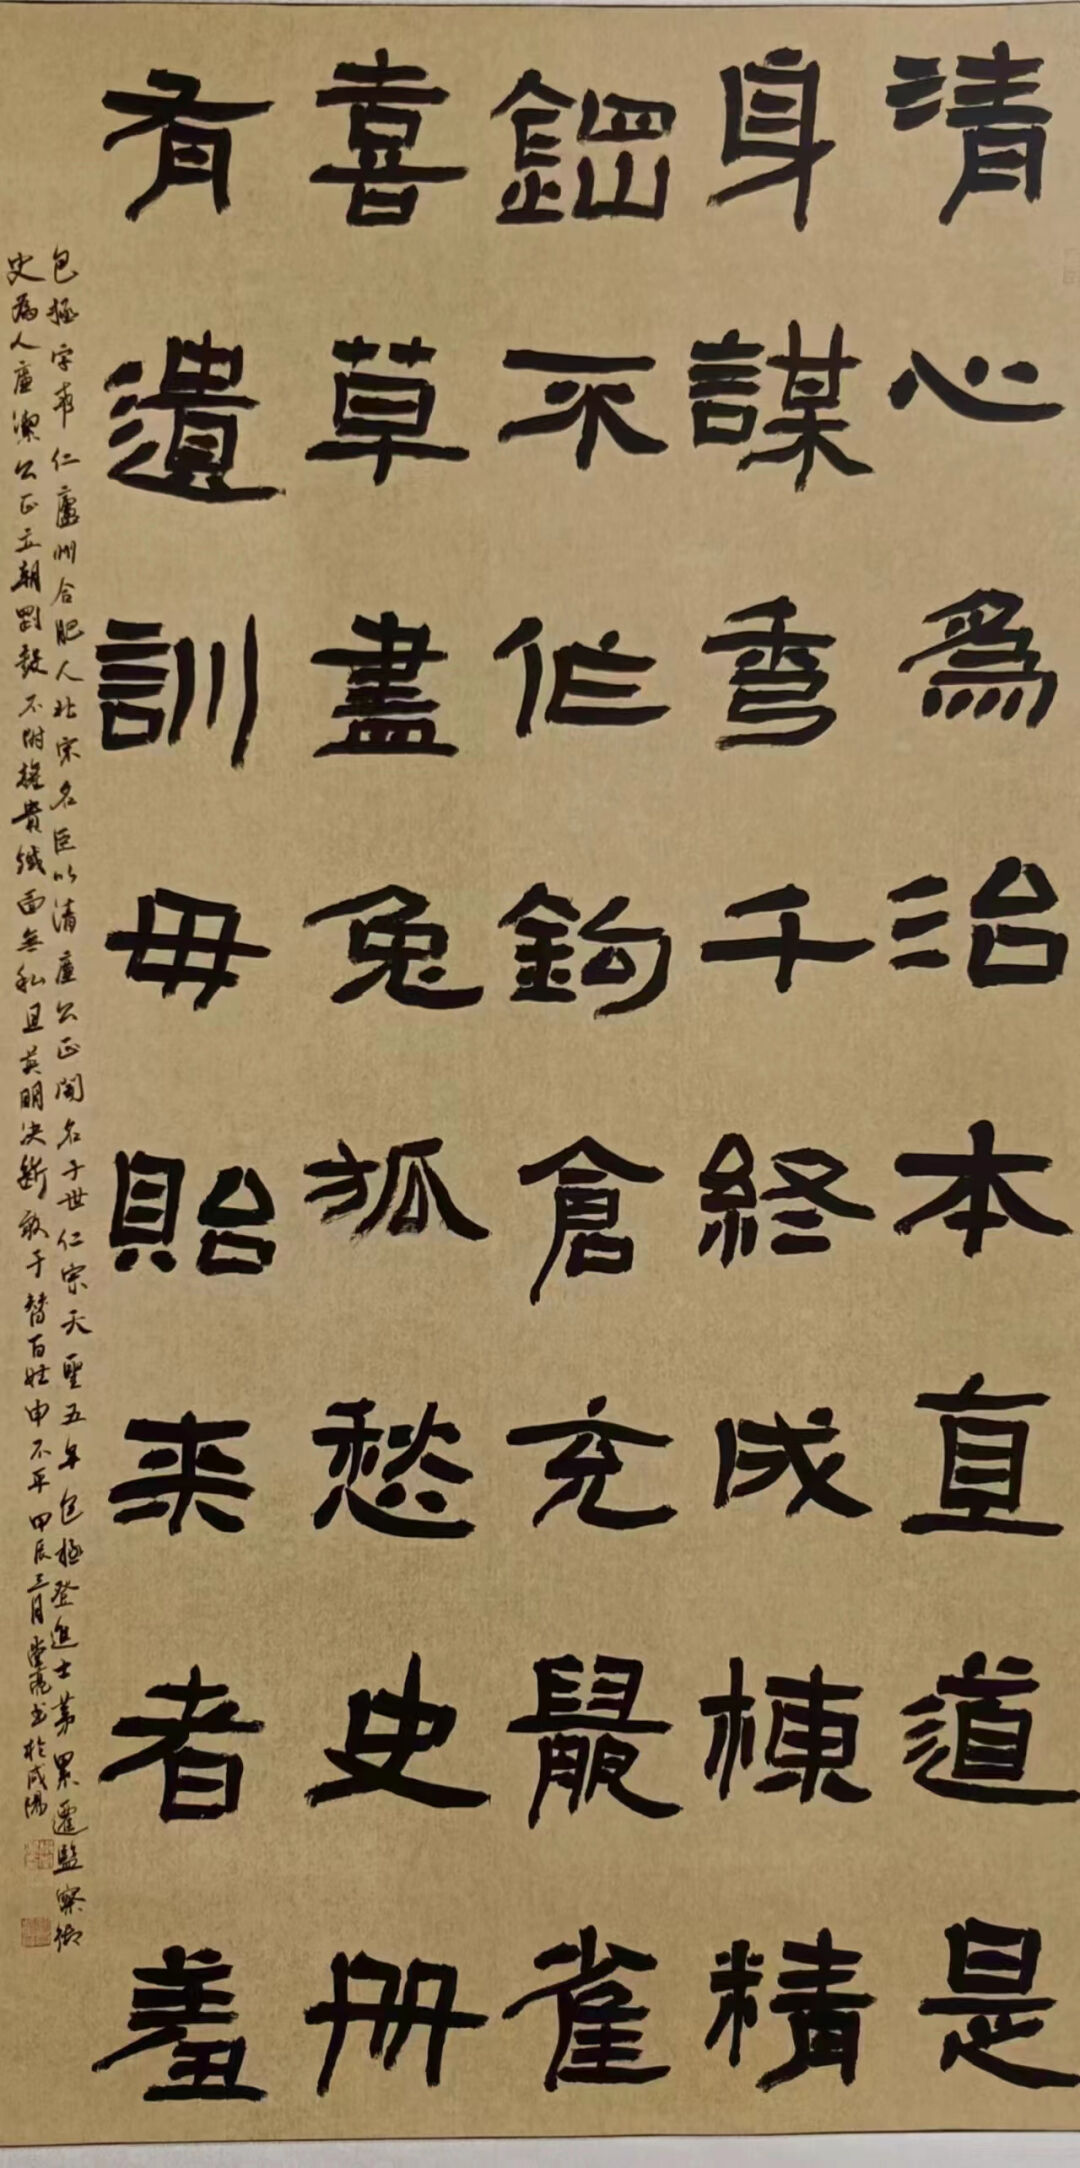 清心爲治本直道是
身謀秀千終成棟精
鋼不作鉤倉充鼠雀
喜草盡兔狐愁史册
有遺訓毋貽来者羞
包拯字希仁廬州合肥人北宋名臣以清廉公正聞名于世仁宗天聖五年包拯登進士第累遷監察御
史為人廉潔公正立朝剛毅不附權貴鐵面無私且英明决斷敢于替百姓申不平甲辰三月书於咸陽